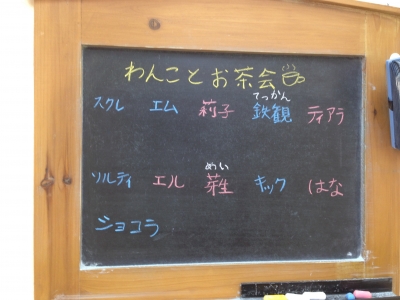 わんことお茶会
てっかん
スクレ エム 莉子 鉄観 ティアラ
めい
ソルティ エル 芽生 キック はな
ショコラ